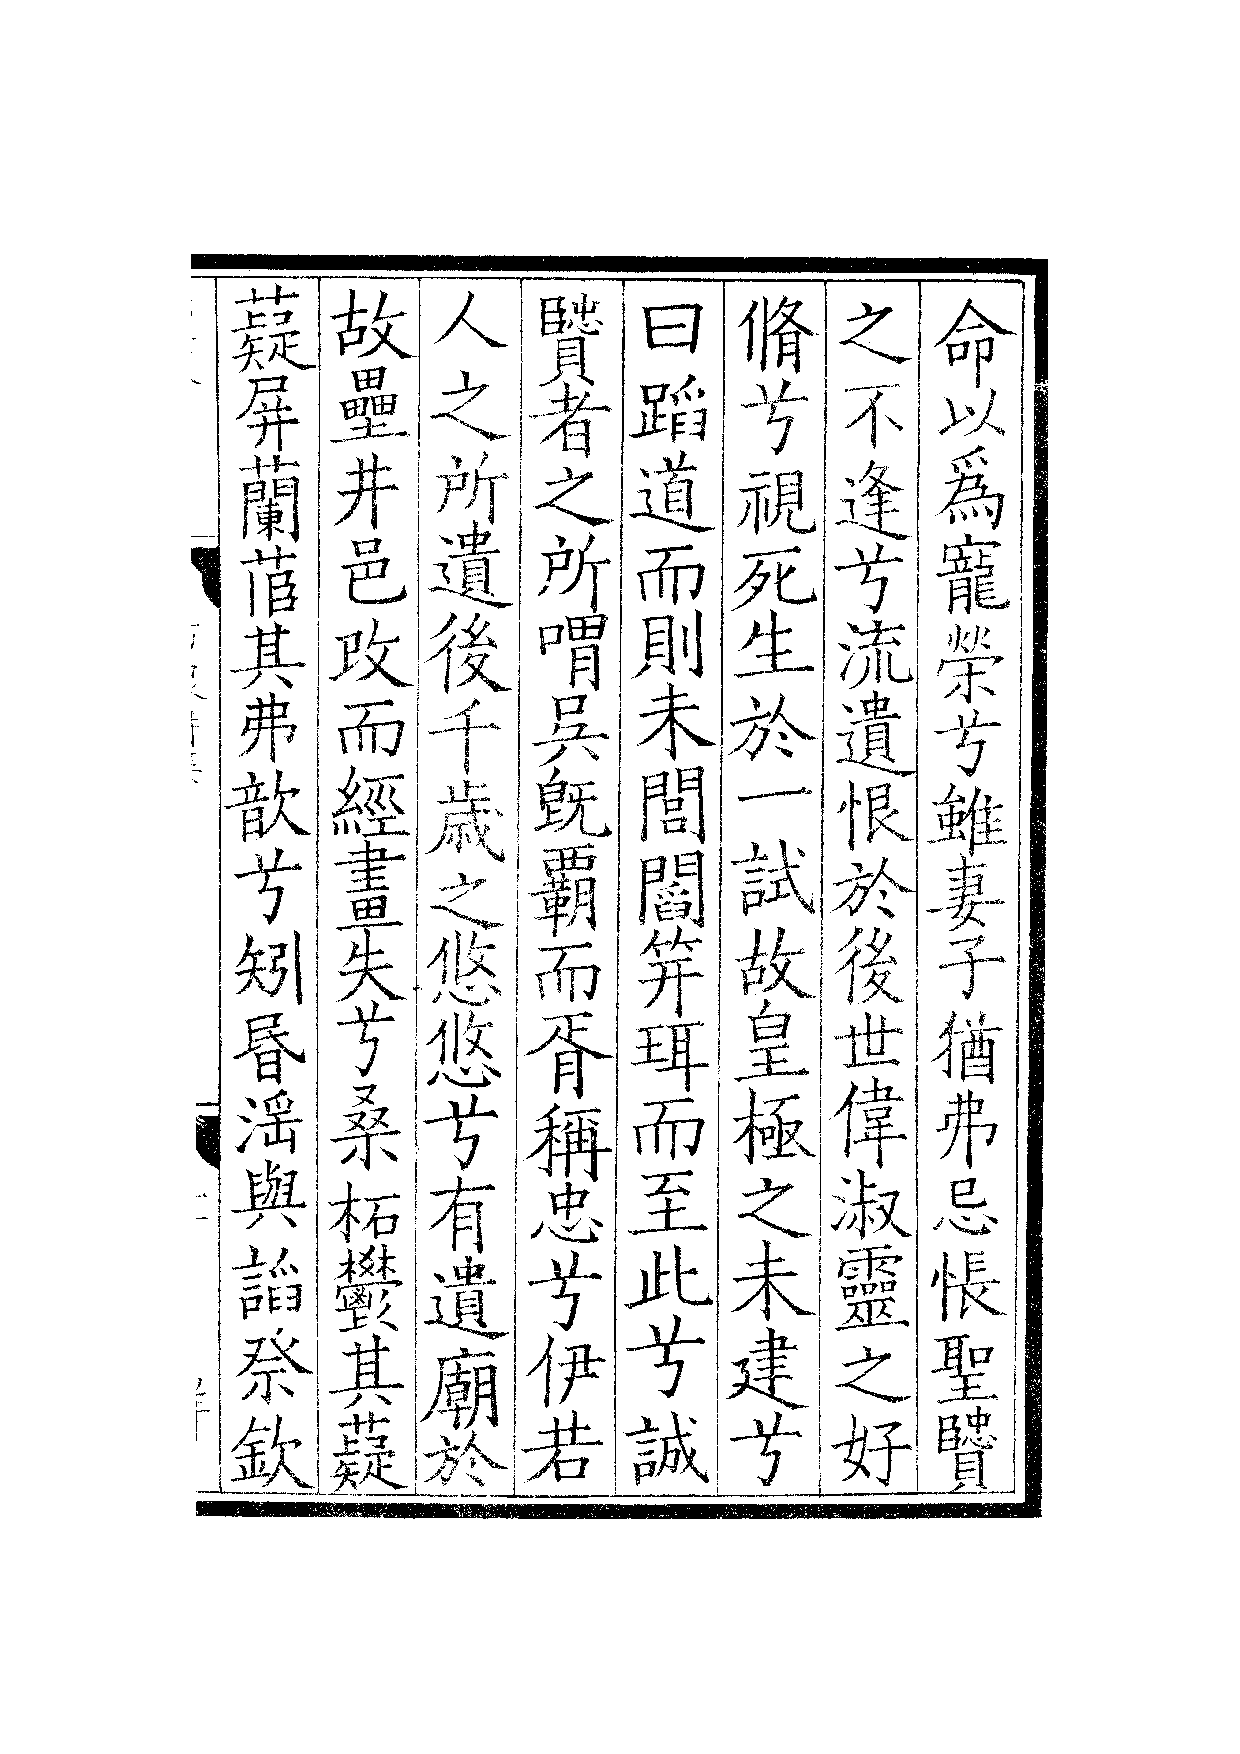 命以爲寵榮兮雖妻子猶弗忌悵聖贒
之不逢兮流遺恨於後世偉淑靈之好
脩兮視死生於一試故皇極之未建兮
曰蹈道而則未閭閻笄珥而至此兮誠
贒者之所喟吳旣覇而胥稱忠兮伊若
人之所遺後千歳之悠悠兮有遺廟於
故壘井邑改而經畫失兮桑柘鬱其薿
薿屏蘭其弗歆兮矧昬淫與謟祭欽